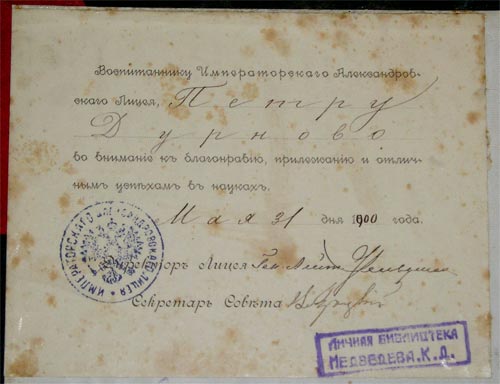 Воспитаннику Императорскаго Александров-
скаго Лицея, Петру
Дурново
во вниманіе къ благонравію, прилежанію и отлич-
нымъ успѣхамъ въ наукахъ.
Мая 31 дня 1900 года.
Директоръ Лицея Ген. Лейт.
Секретарь Совѣта
ИМПЕРАТОРСКАГО АЛЕКСАНДРОВСКАГО ЛИЦЕЯ
ЛИЧНАЯ БИБЛИОТЕКА
МЕДВЕДЕВА.К.Д.